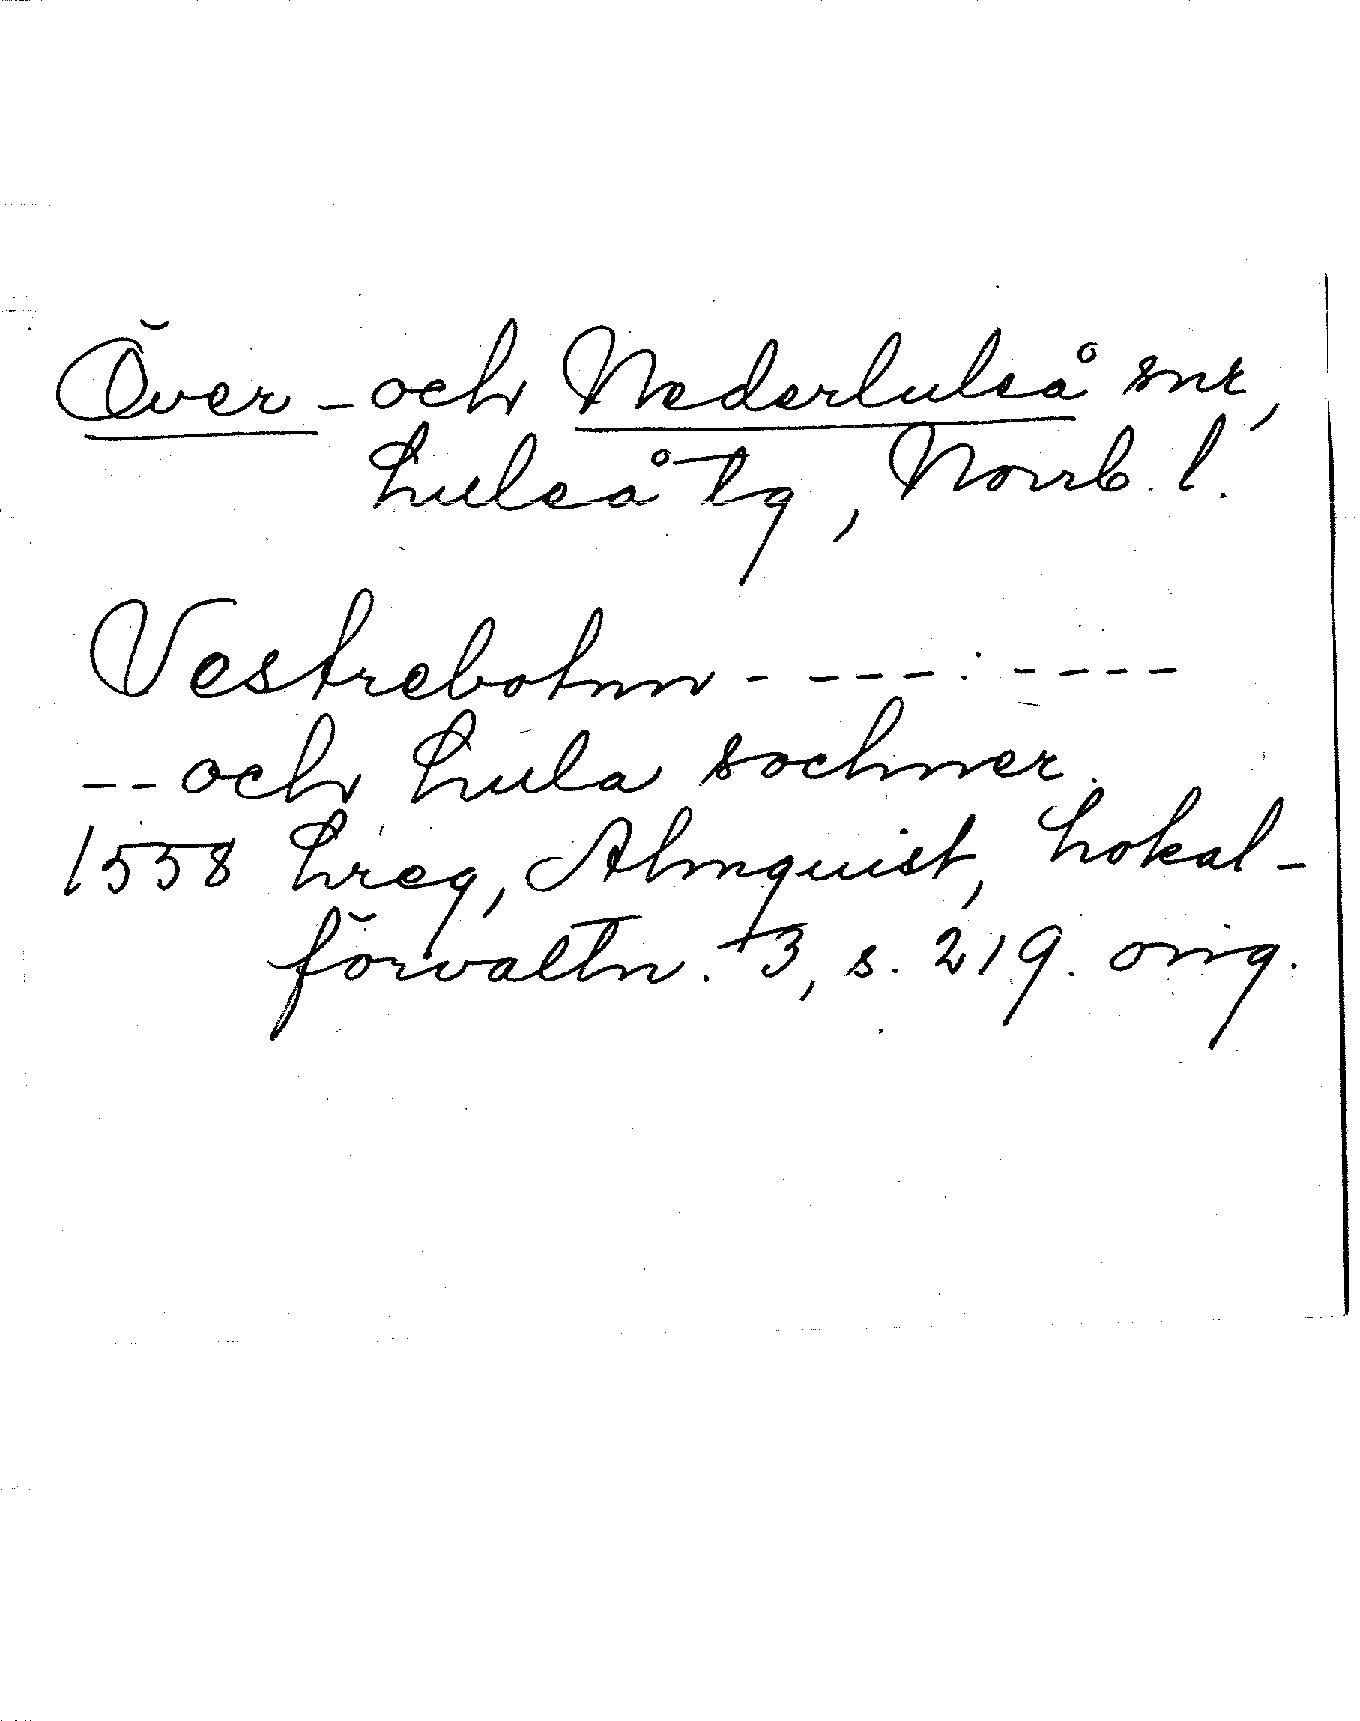 Över- och Nederluleå snr,
Luleå tg, Norrb. l.
Vestrebotnn - ---:----
-- och Lula sochner.
1558 Lreg, Almquist, Lokal-
förvaltn. 3, s. 219. orig.